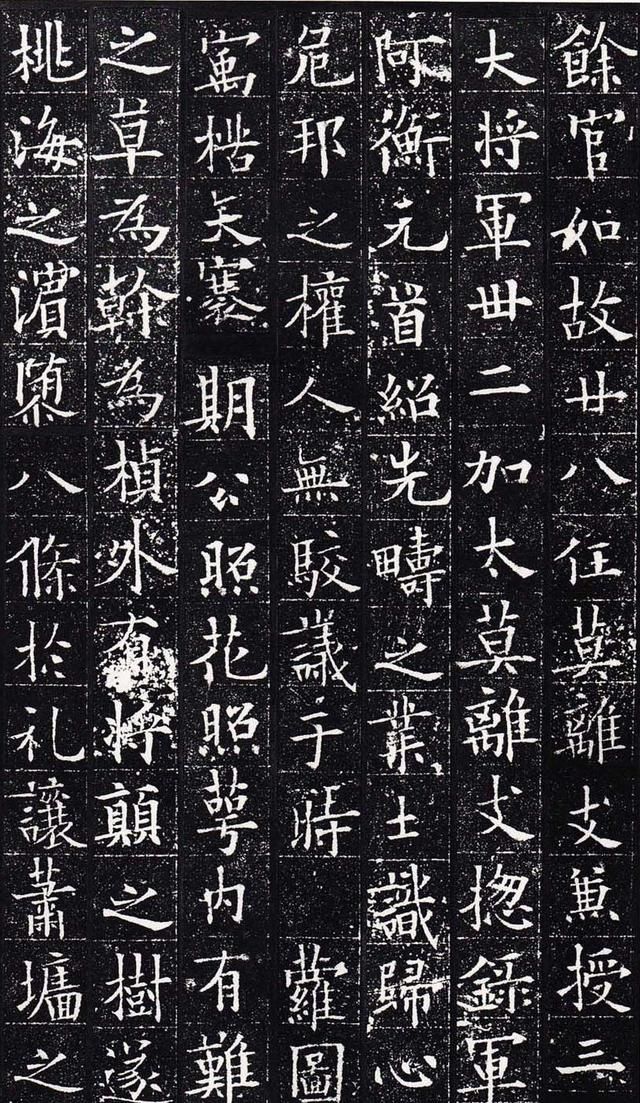 餘官如故廿八任莫離支兼授三
大將軍丗二加太莫離支揔錄軍
阿衡元首紹先疇之業士識歸心
危邦之權人無駮議于時 蘿圖
寓楛矢褰 期公照花照萼內有難
之草為幹為楨外有將顛之樹遂
桃海之濱隳八條於礼讓蕭墻之